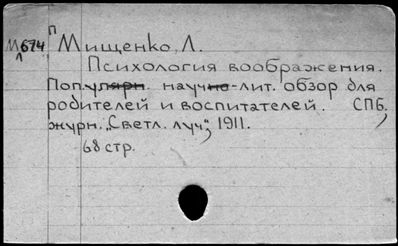 П
М674 Мищенко, Л.
Психология воображения.
Популярн. научно-лит. обзор для
родителей и воспитателей. СПб,
журн. „Светл. луч", 1911.
68 стр.